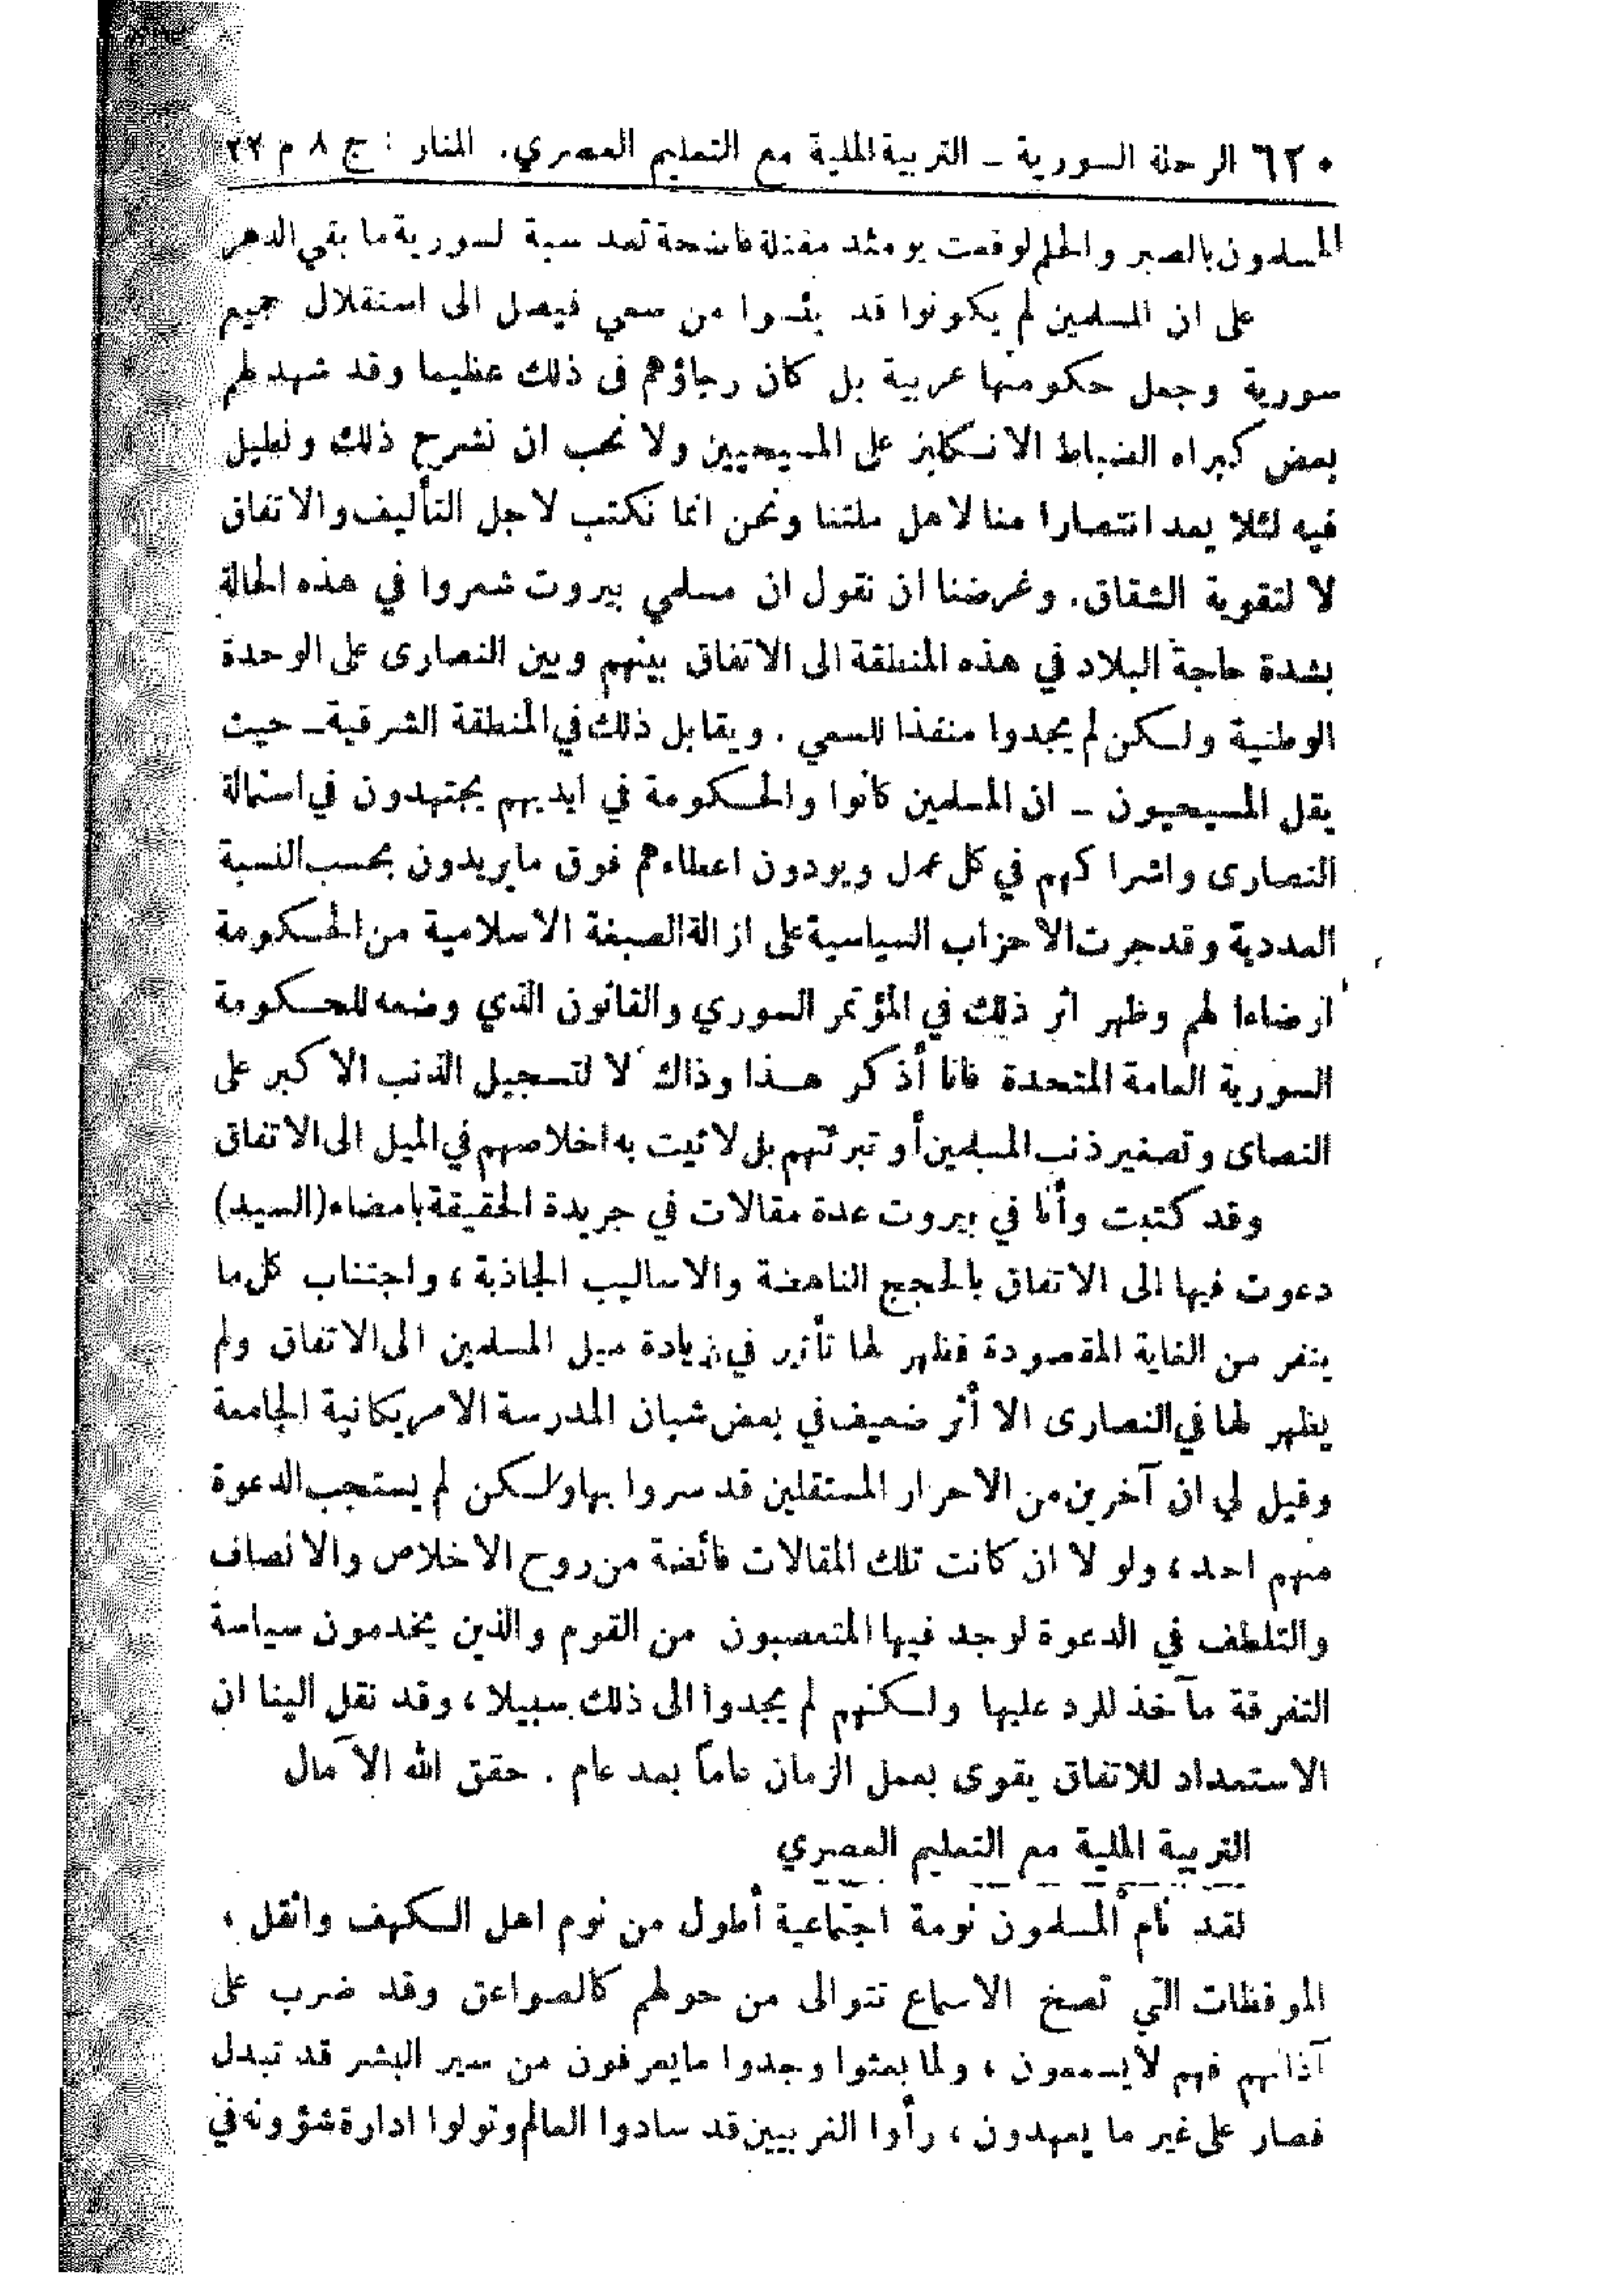 ٦٢٠ الرحلة السورية ــ التربية الملية مع التعليم العصري. المنار : ج ٨ م ٢٢
المسلمون بالصبر والحلم لوقعت يومئذ مقتلة فاضحة تعد سبة لسورية ما بقي الدهر
على ان المسلمين لم يكونوا قد يئسوا من سعي فيصل الى استقلال جميع
سورية وجعل حكومتها عربية بل كان رجاؤهم في ذلك عظيما وقد شهد لهم
بعض كبراء الضباط الانكليز على المسيحيين ولا نحب ان نشرح ذلك ونطيل
فيه لئلا يعد انتصارا منا لاهل ملتنا ونحن انما نكتب لاجل التأليف والاتفاق
لا لتقوية الشقاق. وغرضنا ان نقول ان مسلمي بيروت شعروا في هذه الحالة
بشدة حاجة البلاد في هذه المنطقة الى الاتفاق بينهم وبين النصارى على الوحدة
الوطنية ولكن لم يجدوا منفذا للسعي . ويقابل ذلك في المنطقة الشرقية ــ حيث
يقل المسيحيون ــ ان المسلمين كانوا والحكومة في ايديهم يجتهدون في استمالة
النصارى واشراكهم في كل عمل ويودون اعطاءهم فوق ما يريدون بحسب النسبة
العددية وقد جرت الاحزاب السياسية على ازالة الصبغة الاسلامية من الحكومة
ارضاءا لهم وظهر اثر ذلك في المؤتمر السوري والقانون الذي وضعه للحكومة
السورية العامة المتحدة فانا أذكر هذا وذاك لا لتسجيل الذنب الاكبر على
النصاى وتصغير ذنب المسلمين أو تبرئتهم بل لاثبت به اخلاصهم في الميل الى الاتفاق
وقد كتبت وأنا في بيروت عدة مقالات في جريدة الحقيقة بامضاء (السيد)
دعوت فيها الى الاتفاق بالحجج الناهضة والاساليب الجاذبة ، واجتناب كل ما
ينفر من الغاية المقصودة فظهر لها تأثير في زيادة ميل المسلمين الى الاتفاق ولم
يظهر لها في النصارى الا أثر ضعيف في بعض شبان المدرسة الامريكانية الجامعة
وقيل لي ان آخرين من الاحرار المستقلين قد سروا بها ولكن لم يستجب الدعوة
منهم احد ، ولو لا ان كانت تلك المقالات فائضة من روح الاخلاص والانصاف
والتلطف في الدعوة لوجد فيها المتعصبون من القوم والذين يخدمون سياسة
التفرقة مآخذ للرد عليها ولكنهم لم يجدوا الى ذلك سبيلا ، وقد نقل الينا ان
الاستعداد للاتفاق يقوى بعمل الزمان عاماً بعد عام . حقق الله الآمال
التربية الملية مع التعليم العصري
لقد نام المسلمون نومة اجتماعية أطول من نوم اهل الكهف واثقل ،
الموقظات التي تصخ الاسماع تتوالى من حولهم كالصواعق وقد ضرب على
آذانهم فهم لا يسمعون ، ولما بعثوا وجدوا ما يعرفون من سير البشر قد تبدل
فصار على غير ما يعهدون ، رأوا الغربيين قد سادوا العالم وتولوا ادارة شؤونه في